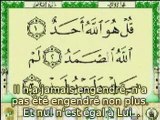 قُلْ هُوَ ٱللَّهُ أَحَدٌ ١
ٱللَّهُ ٱلصَّمَدُ ٢ لَمْ
Il n'a jamais engendré, n'a
pas été engendré non plus.
Et nul n'est égal à Lui.